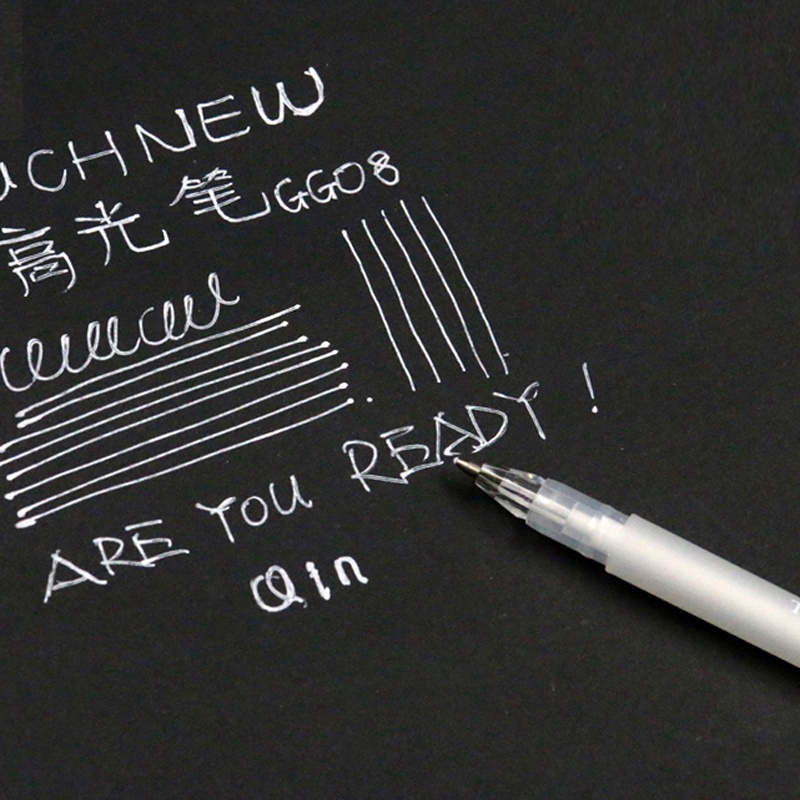 uCHNEW
高光笔GG08
ARE YOU READY !
Qin